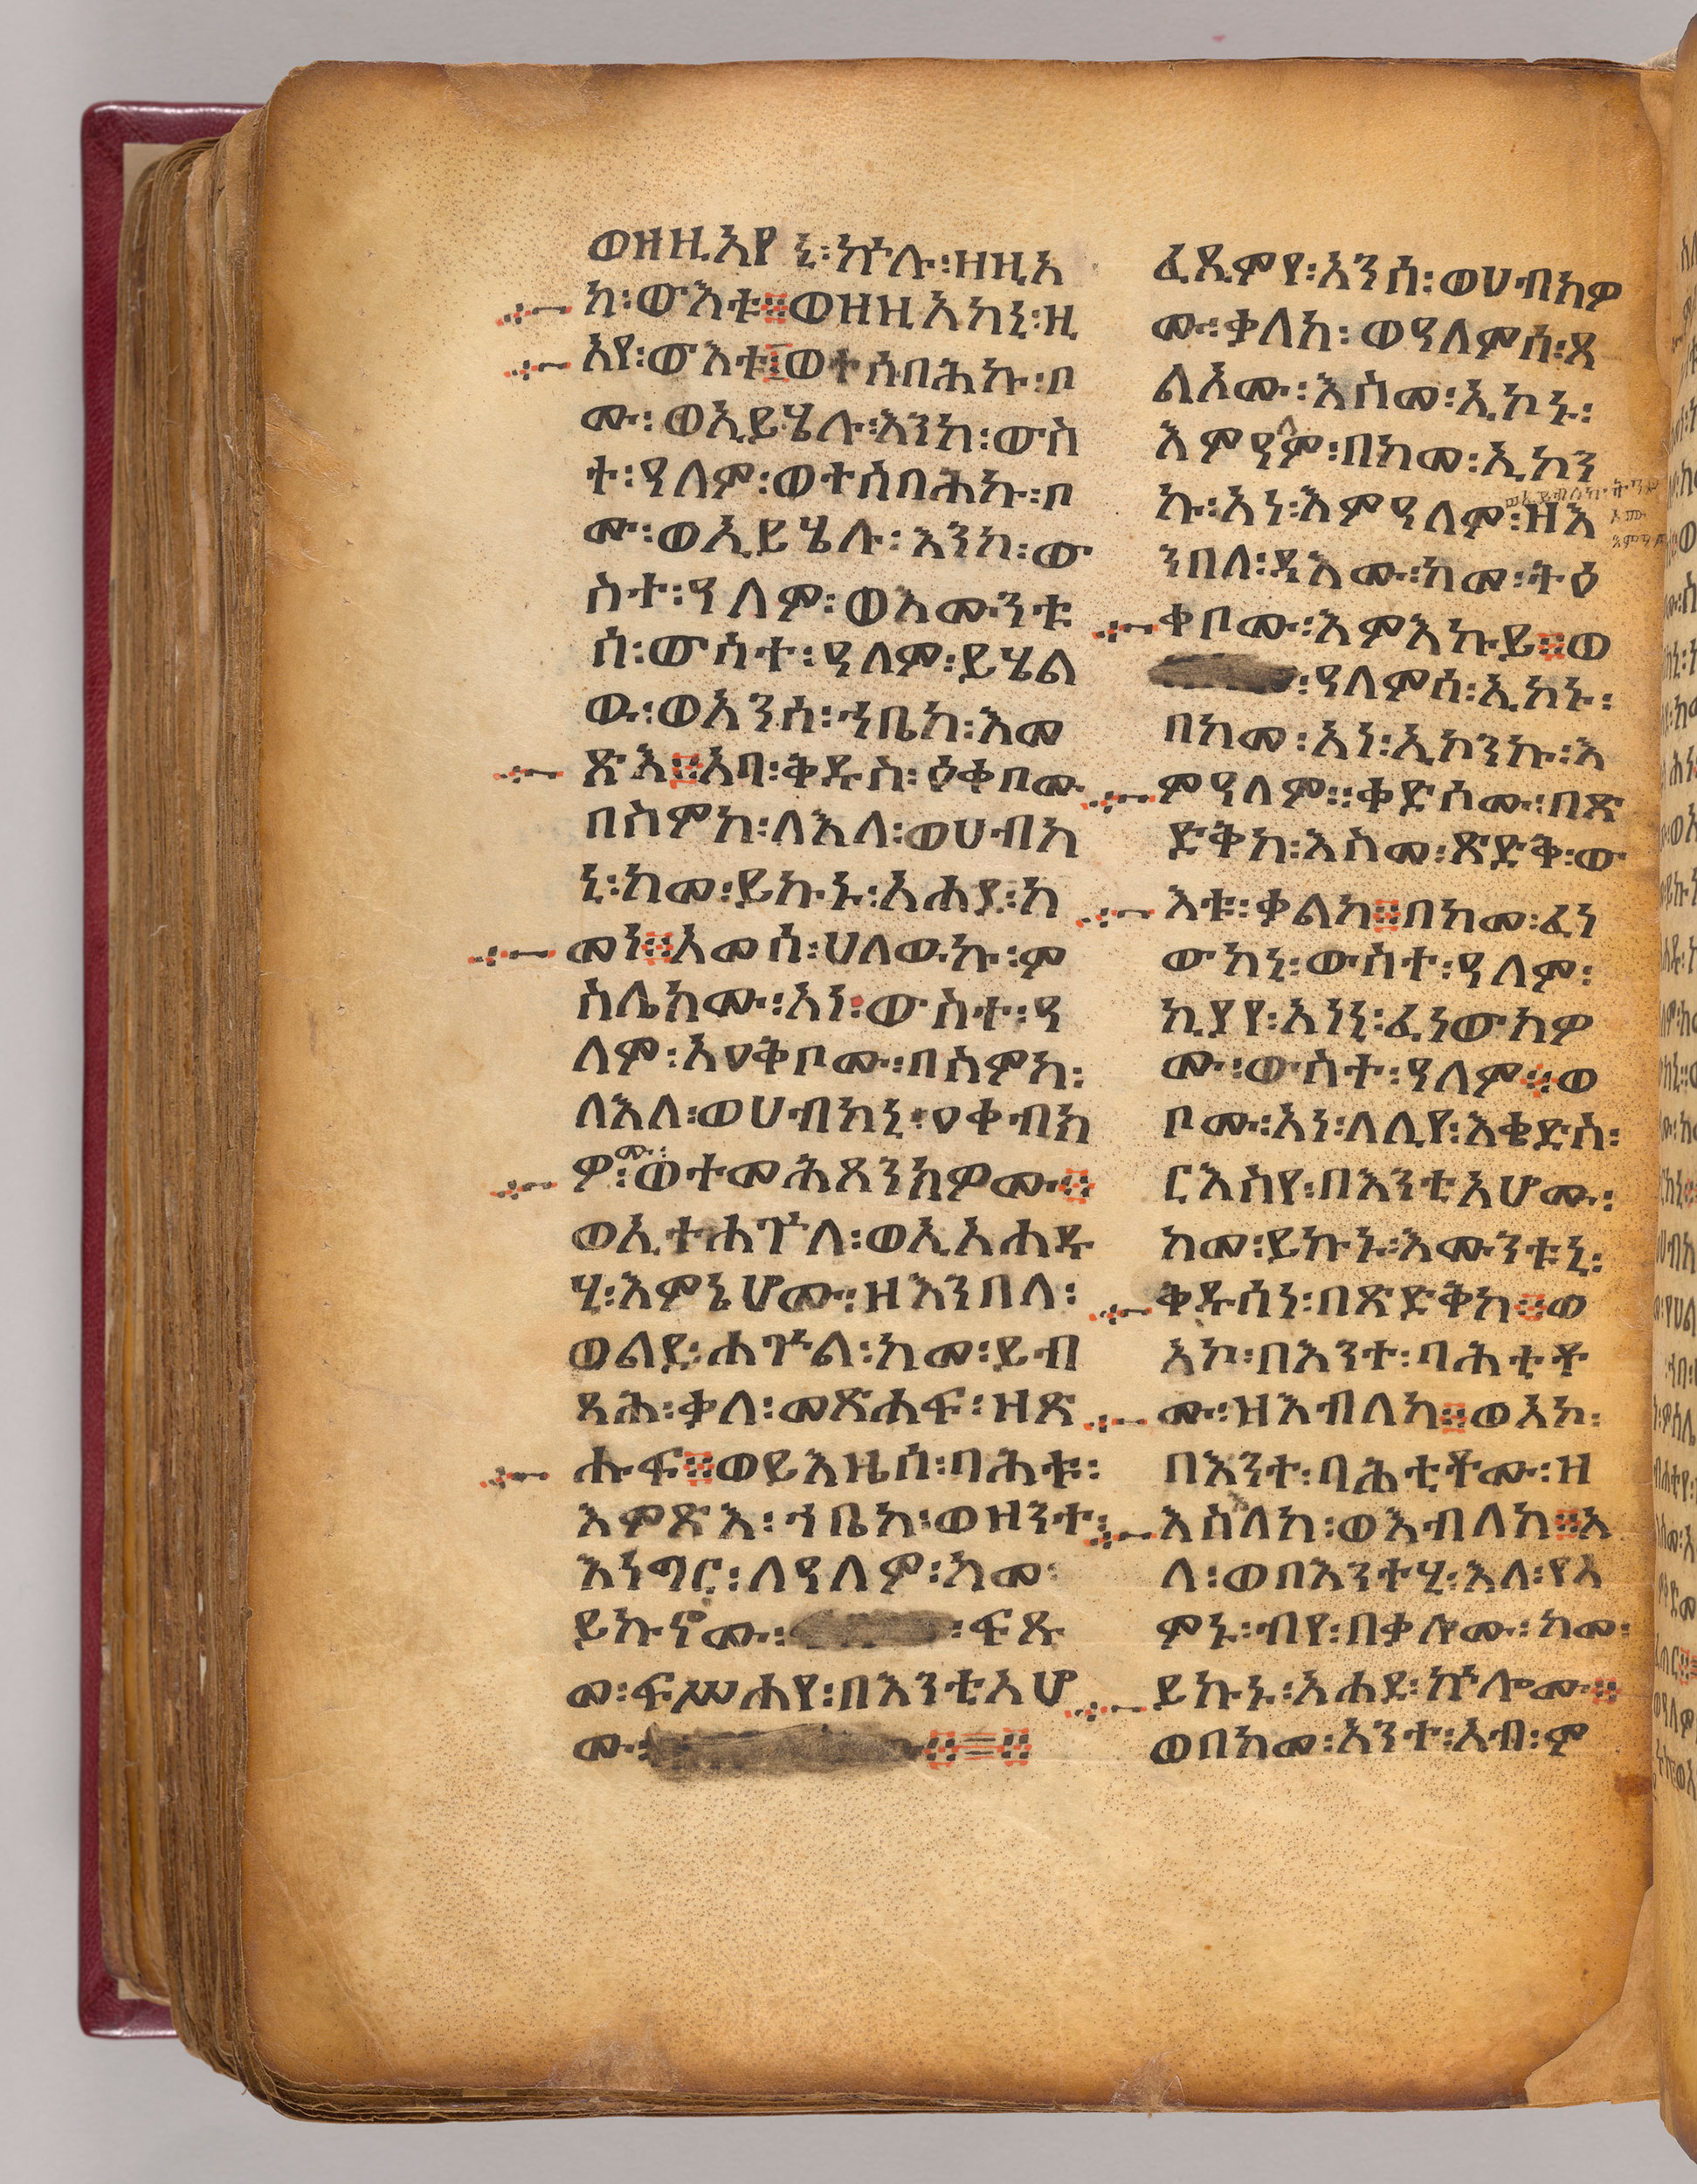 ወዘዚአየ ኒ፡ኵሉ፡ዘዚአ
ከ፡ውእቱ፨ወዘዚአከኒ፡ዚ
አየ፡ውእቱ፤ወተሰባሕኩ፡ቦ
ሙ፡ወኢይሄሉ፡እንከ፡ውስ
ተ፡ዓለም፡ወተሰባሕኩ፡ቦ
ሙ፡ወኢይሄሉ፡እንከ፡ው
ስተ፡ዓለም፡ወእሙንቱ
ሰ፡ውስተ፡ዓለም፡ይሄል
ዉ፡ወአንሰ፡ኀቤከ፡እመ
ጽእ፨አባ፡ቅዱስ፡ዕቀቦሙ
በስምከ፡ለእለ፡ወሀብከ
ኒ፡ከመ፡ይኩኑ፡አሐደ፡ከ
መነ፨አመሰ፡ሀለውኩ፡ም
ስሌከሙ፡አነ፡ውስተ፡ዓ
ለም፡አዐቅቦሙ፡በስምከ፡
ለእለ፡ወሀብከኒ፡ዐቀብክ
ዎ፡ሙ፡ወተመሕጸንክዎሙ፨
ወኢተሐጕለ፡ወኢአሐዱ
ሂ፡እምኔሆሙ፡ዘእንበለ፡
ወልደ፡ሐጕል፡ከመ፡ይብ
ጻሕ፡ቃለ፡መጽሐፍ፡ዘጽ
ሑፍ፨ወይእዜሰ፡ባሕቱ፡
እምጽእ፡ኀቤከ፡ወዘንተ፡
እነግር፡ለዓለም፡ከመ፡
ይኩኖሙ፡ ፡ፍጹ
መ፡ፍሥሐየ፡በእንቲአሆ
ሙ፡ ፨=፨
ፈጺምየ፡አንሰ፡ወሀብክዎ
ሙ፡ቃለከ፡ወዓለምሰ፡ጸ
ልአሙ፡እስመ፡ኢኮኑ፡
እምዓም፡በከመ፡ኢኮን
ኩ፡አነ፡እምዓለም፡ዘእ
ንበለ፡ዳእሙ፡ከመ፡ትዕ
ቀቦሙ፡እምእኩይ፨ወ
፡ዓለምሰ፡ኢኮኑ፡
በከመ፡አነ፡ኢኮንኩ፡እ
ምዓለም፡፡ቀድሶሙ፡በጽ
ድቅከ፡እስመ፡ጽድቅ፡ው
እቱ፡ቃልከ፨በከመ፡ፈነ
ውከኒ፡ውስተ፡ዓለም፡
ኪያየ፡አነኒ፡ፈነውክዎ
ሙ፡ውስተ፡ዓለም፨ወ
ቦሙ፡አነ፡ለሊየ፡እቄድስ፡
ርእስየ፡በእንቲአሆሙ፡
ከመ፡ይኩኑ፡እሙንቱኒ፡
ቅዱሳነ፡በጽድቅከ፨ወ
አኮ፡በእንተ፡ባሕቲቶ
ሙ፡ዝእብለከ፨ወአኮ፡
በእንተ፡ባሕቲቶሙ፡ዝ
እስለከ፡ወእብለከ፨አ
ላ፡ወበእንተሂ፡እለ፡የአ
ምኑ፡ብየ፡በቃሎሙ፡ከመ፡
ይኩኑ፡አሐደ፡ኵሎሙ፨
ወበከመ፡አንተ፡አብ፡ም